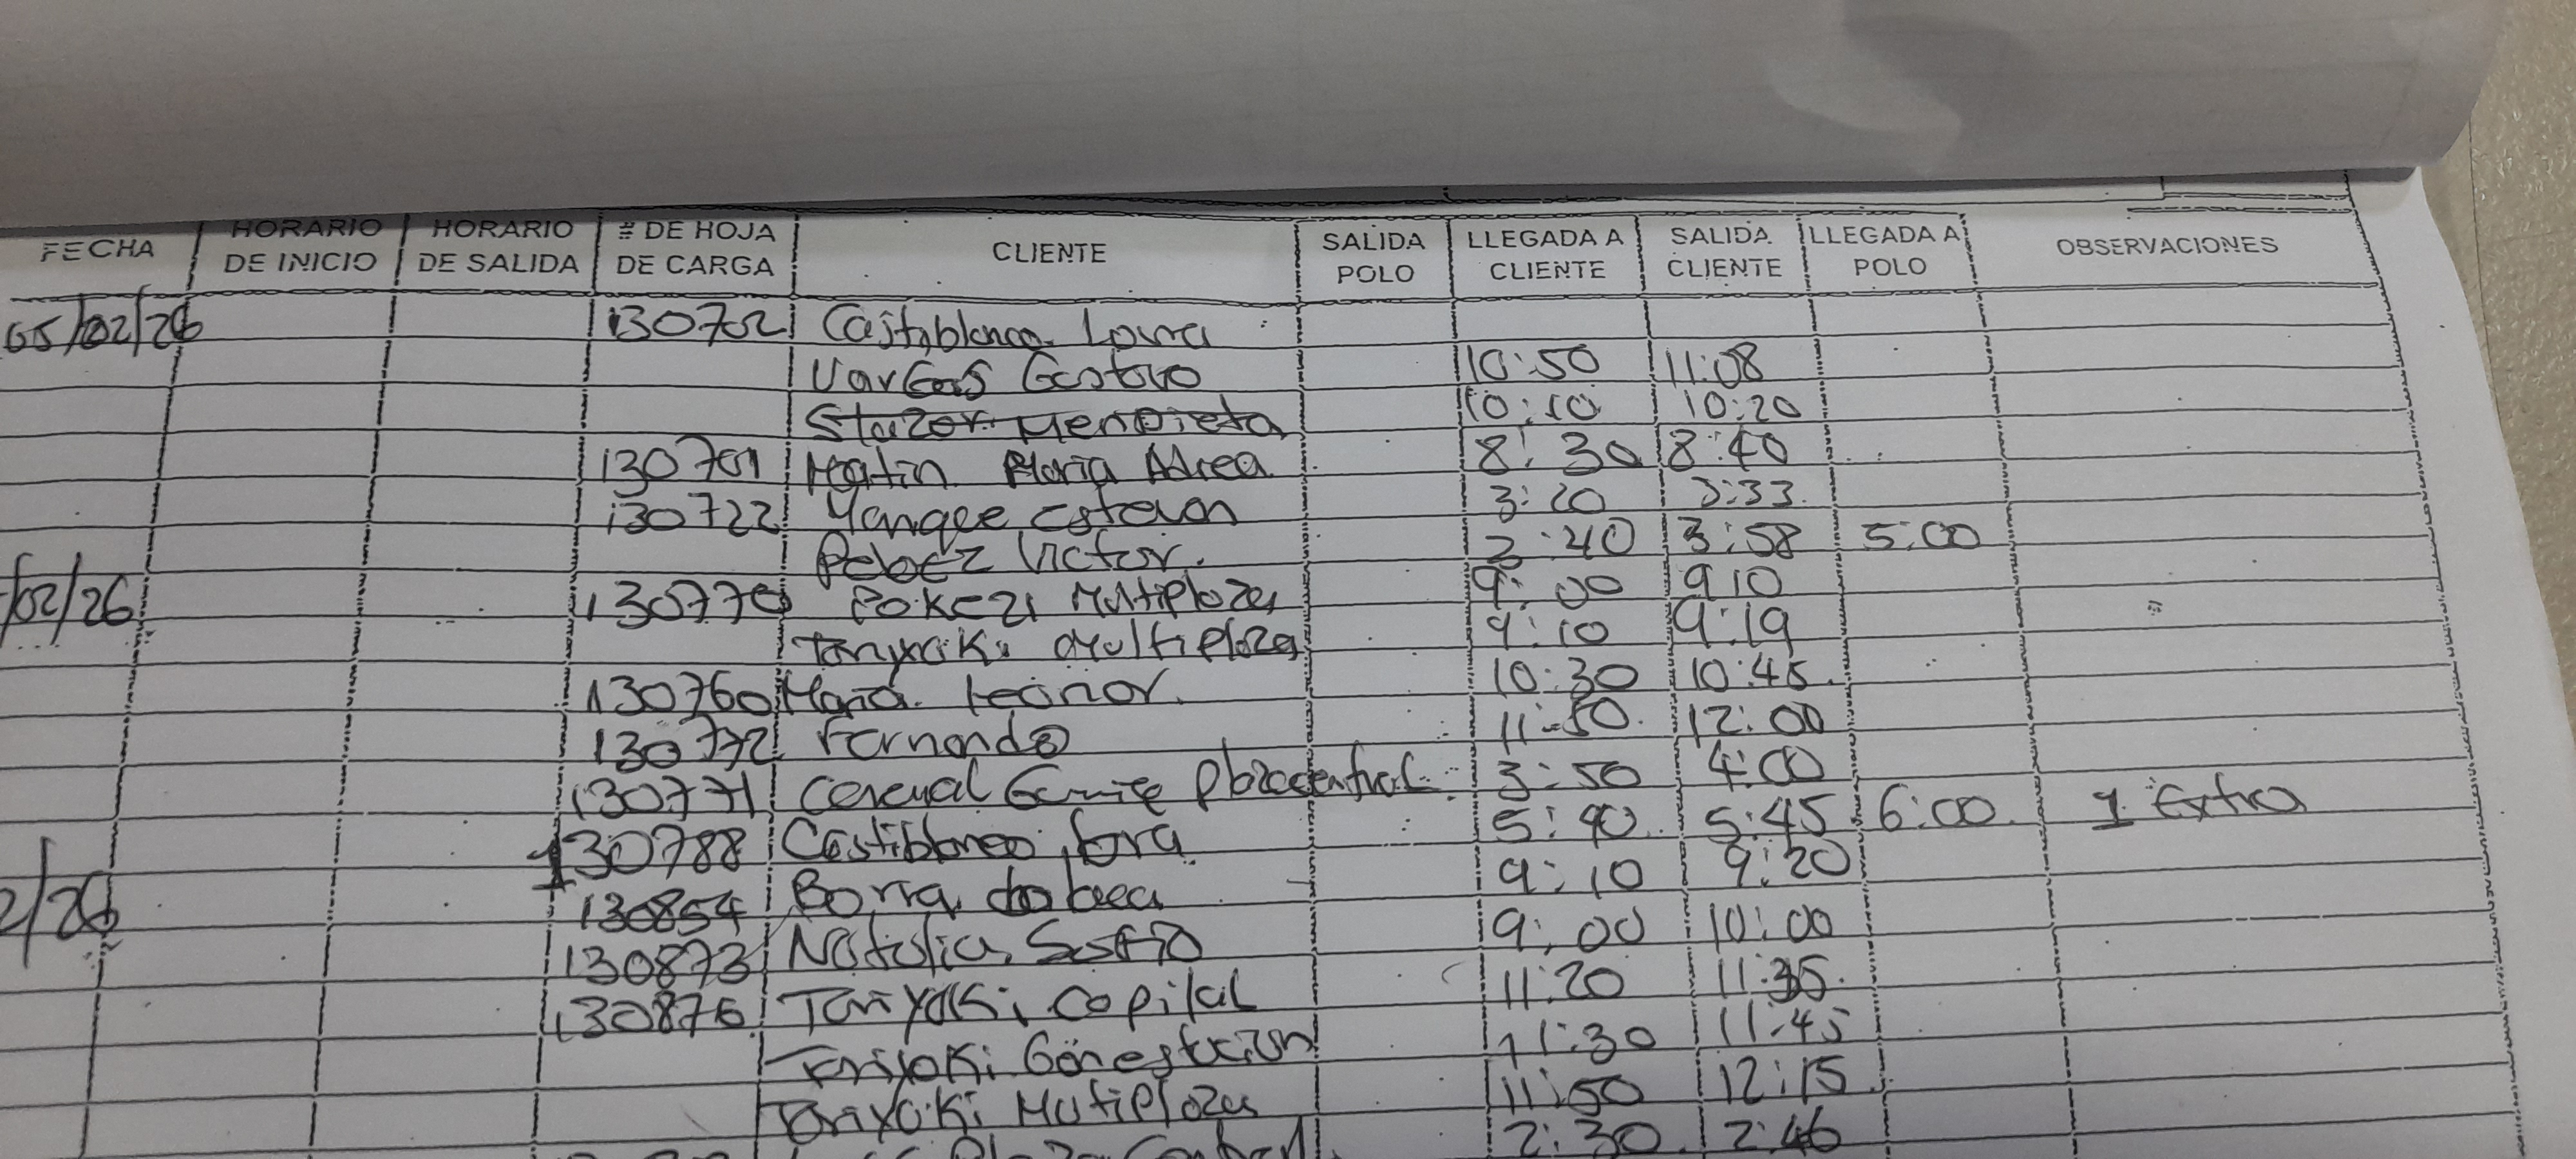 FECHA HORARIO DE INICIO HORARIO DE SALIDA # DE HOJA DE CARGA CLIENTE SALIDA POLO LLEGADA A CLIENTE SALIDA CLIENTE LLEGADA A POLO OBSERVACIONES
05/02/26 130702 Castiblanco Lowra
Vargas Gostovo 10:50 11:08
Mendieta 10:10 10:20
130701 Matin Maria Adrea 8:30 8:40
130722 Yanquee Estevan 3:20 3:33
Pelaez Victor. 3:40 3:58 5:00
/02/26 130770 Pokezi Multiplaza 9:00 910
Tanyxaki Multiplaza 9:10 9:19
130760 Maria Leonor. 10:30 10:45
130772 Fernando 11:50 12:00
130771 Plazacentral 3:50 4:00
130788 Castiblanco 5:40 5:45 6:00 1 Extra
2/26 130854 Borra 9:10 9:20
130873 Natalia 9:00 10:00
130876 Tariyaki Copital 11:20 11:35
Tariyaki Gonestacion 11:30 11:45
Tariyaki Mutiplaza 11:50 12:15
Plaza Central 2:30 2:46